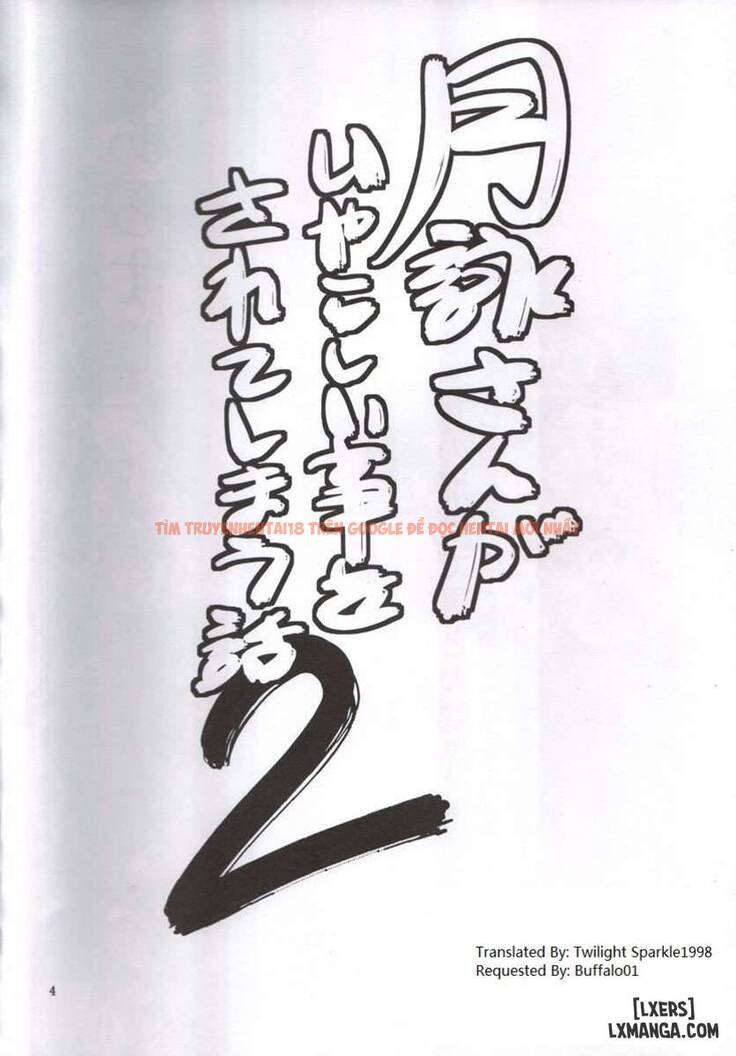 月詠さんが
いやらしい事を
されてしまう話
2
TÌM TRUYENHENTAI18 TRÊN GOOGLE ĐỂ ĐỌC HENTAI MỚI NHẤT
Translated By: Twilight Sparkle1998
Requested By: Buffalo01
4
[LXERS]
LXMANGA.COM